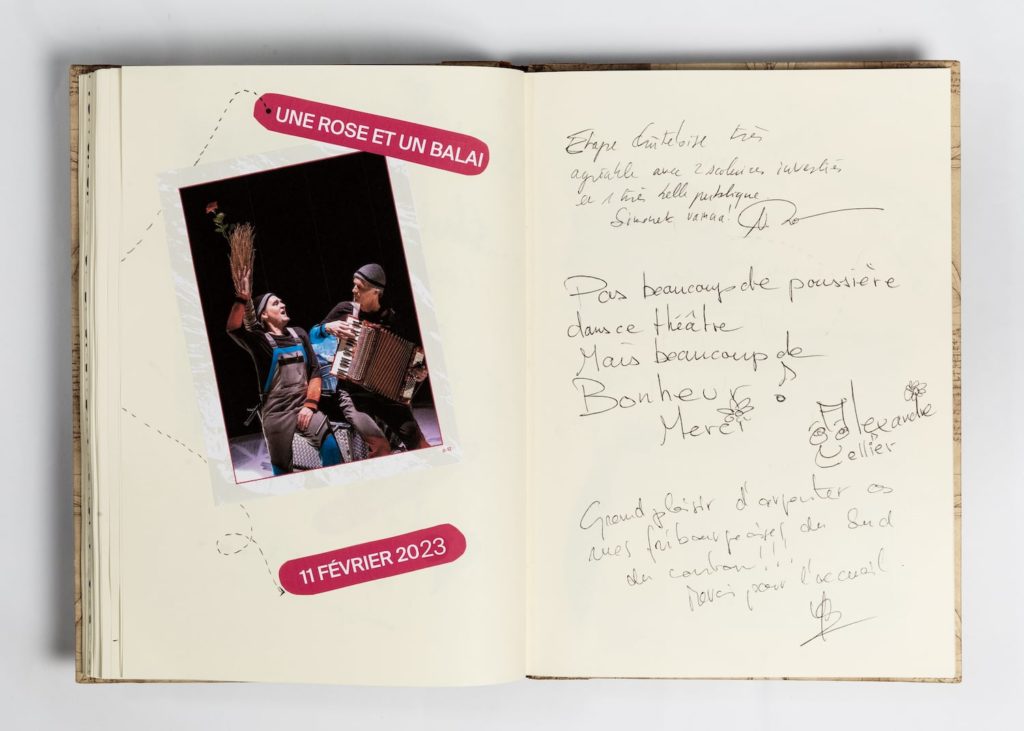 UNE ROSE ET UN BALAI
11 FÉVRIER 2023
Etape très
agréable avec 2 scolaires investies
et 1 très belle publique
Simonek vamua!
Pas beaucoup de poussière
dans ce théâtre
Mais beaucoup de
Bonheur !
Merci
Alexandre
Cellier
Grand plaisir d'arpenter
mes fribourgeoises du Sud
du canton!!!
Merci pour l'accueil.